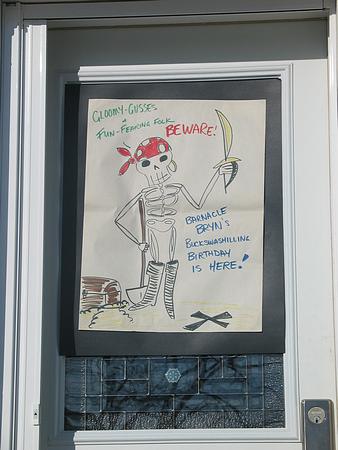 GLOOMY-GUSSES
&
FUN-FEARING FOLK
BEWARE!
BARNACLE
BRYN'S
BUCKSWASHILLING
BIRTHDAY
IS HERE!